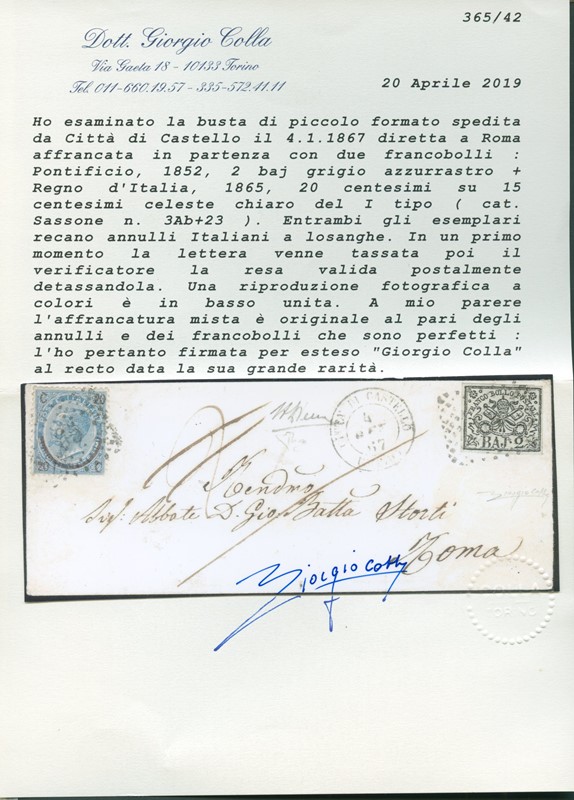 365/42
Dott. Giorgio Colla
Via Gaeta 18 - 10133 Torino
Tel. 011-660.19.57 - 335-572.41.11
20 Aprile 2019
Ho esaminato la busta di piccolo formato spedita
da Città di Castello il 4.1.1867 diretta a Roma
affrancata in partenza con due francobolli :
Pontificio, 1852, 2 baj grigio azzurrastro +
Regno d'Italia, 1865, 20 centesimi su 15
centesimi celeste chiaro del I tipo ( cat.
Sassone n. 3Ab+23 ). Entrambi gli esemplari
recano annulli Italiani a losanghe. In un primo
momento la lettera venne tassata poi il
verificatore la resa valida postalmente
detassandola. Una riproduzione fotografica a
colori è in basso unita. A mio parere
l'affrancatura mista è originale al pari degli
annulli e dei francobolli che sono perfetti :
l'ho pertanto firmata per esteso "Giorgio Colla"
al recto data la sua grande rarità.
C 20
20 C
DI CASTELLO
4
67
FRANCO BOLLO
BAJ 2
Giorgio Colla
Sig: Abbate D. Gio Batta Storti
Roma
Giorgio Colla